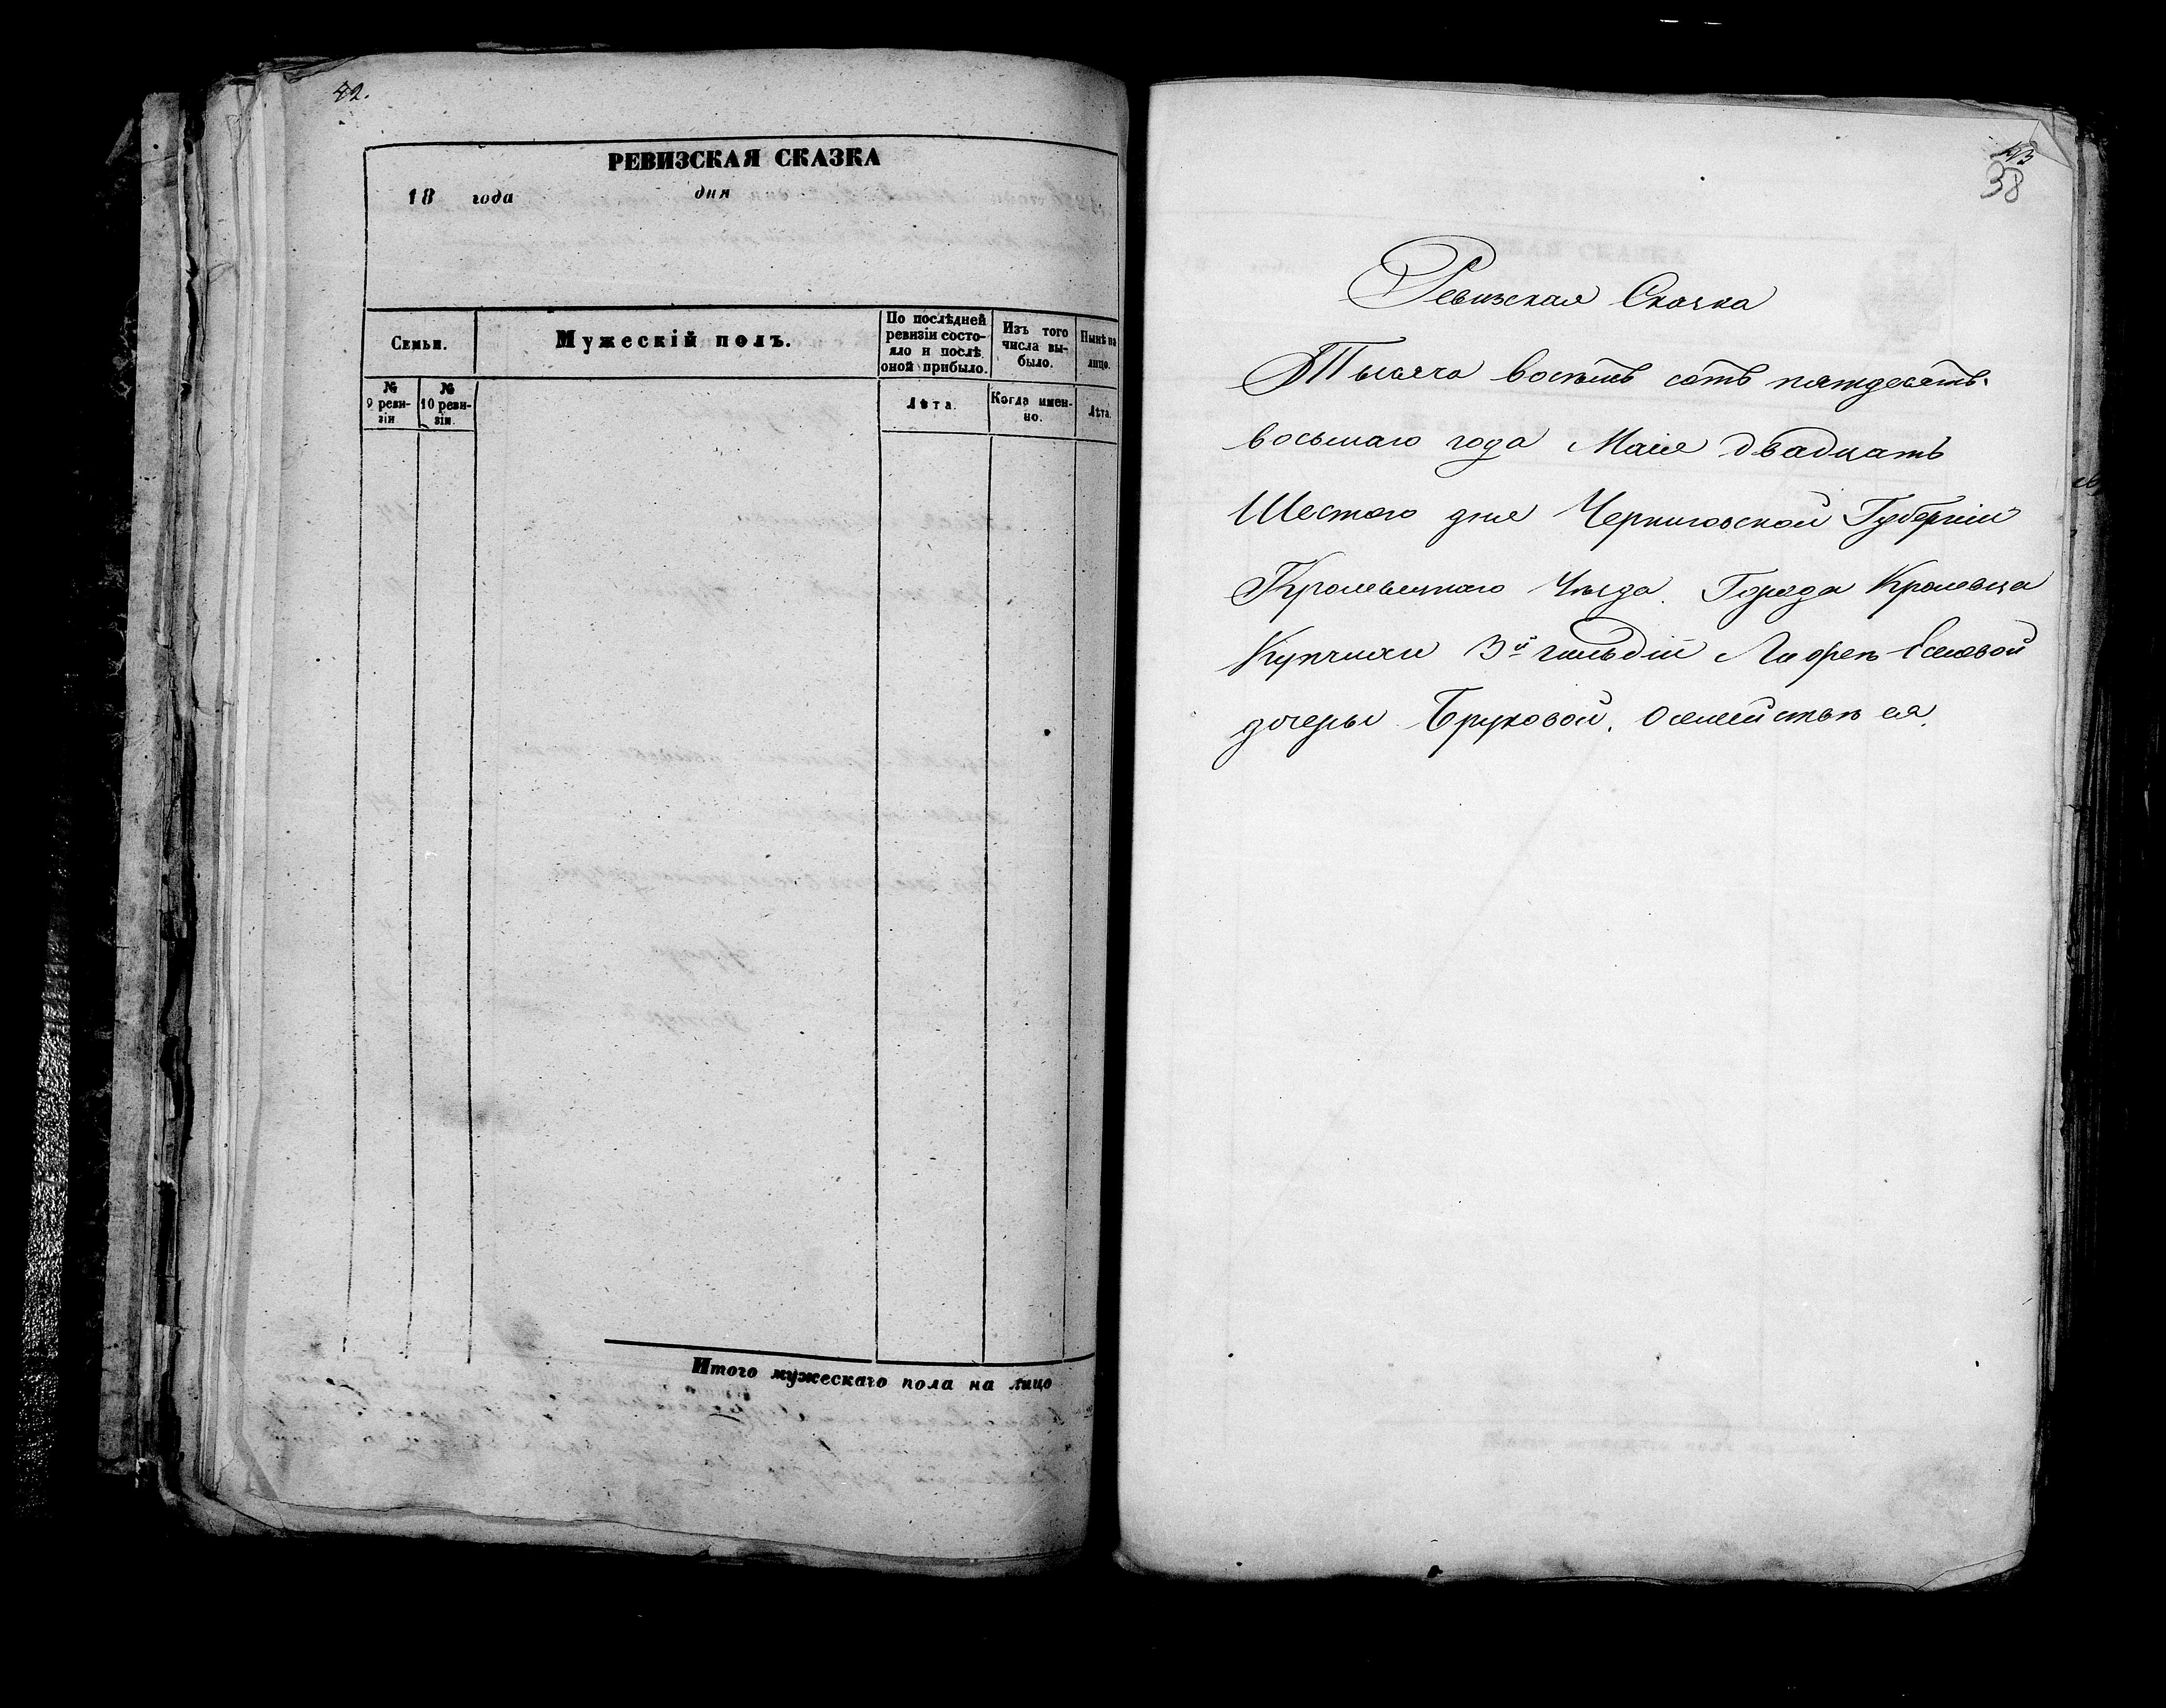 42.
РЕВИЗСКАЯ СКАЗКА
18 года дня
Семьи.
Мужескій полъ.
По послѣдней ревизіи состояло и послѣ оной прибыло.
Изъ того числа выбыло.
Нынѣ на лицо.
№ 9 ревизіи
№ 10 ревизіи.
Лѣта.
Когда именно.
Лѣта.
Итого мужескаго пола на лицо
43
38
Ревизская Сказка
Тысяча восемь сотъ пятдесятъ
восьмаго года Маія двадцать
Шестого дня Черниговской Губерніи
Кролевецкаго Уѣзда. Города Кролевца
Купчихи 3й гильдіи
дочеры Бруковой, о семействѣ ея.